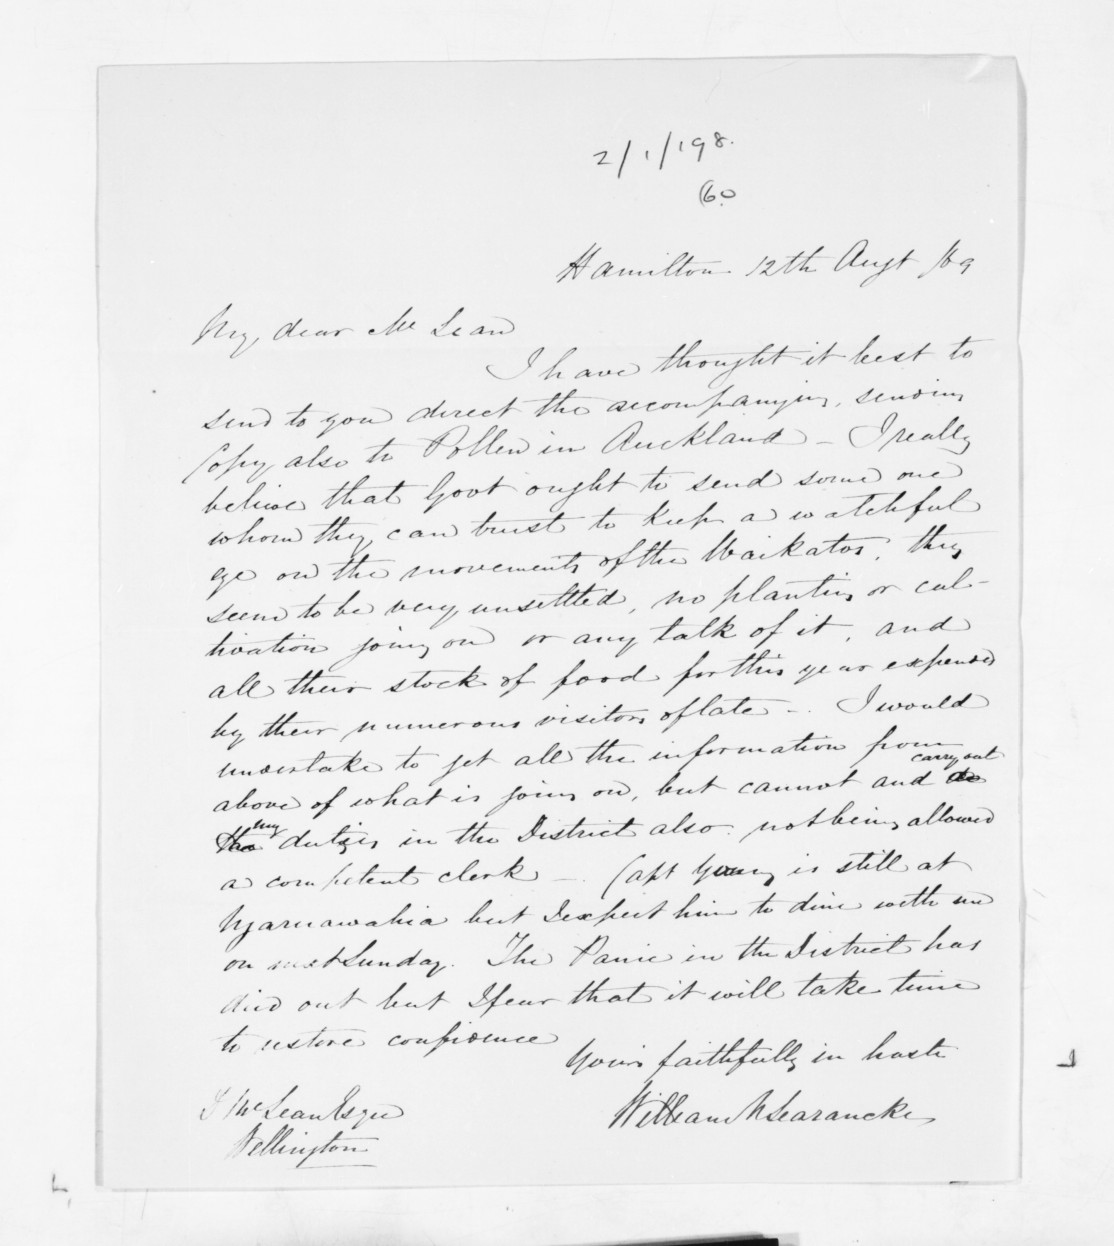 2/1/198.
(60
Hamilton 12th Augt /69
My dear McLean
I have thought it best to
send to you direct the accompanying, sending
Copy also to Pollen in Auckland - I really
believe that Govt ought to send some one
whom they can trust to keep a watchful
eye on the movements of the Waikatos, they
seem to be very unsettled, no planting or cul-
tivation going on or any talk of it, and
all their stock of food for this year expended
by their numerous visitors of late -. I would
undertake to get all the information from
carry out
above of what is going on, but cannot and do
my
the duties in the District also. not being allowed
a competent clerk -. Capt Young is still at
Ngaruawahia but I expect him to dine with me
on next Sunday. The Panic in the District has
died out but I fear that it will take time
to restore confidence
Yours faithfully in haste
William N Searancke
D McLean Esqre
Wellington